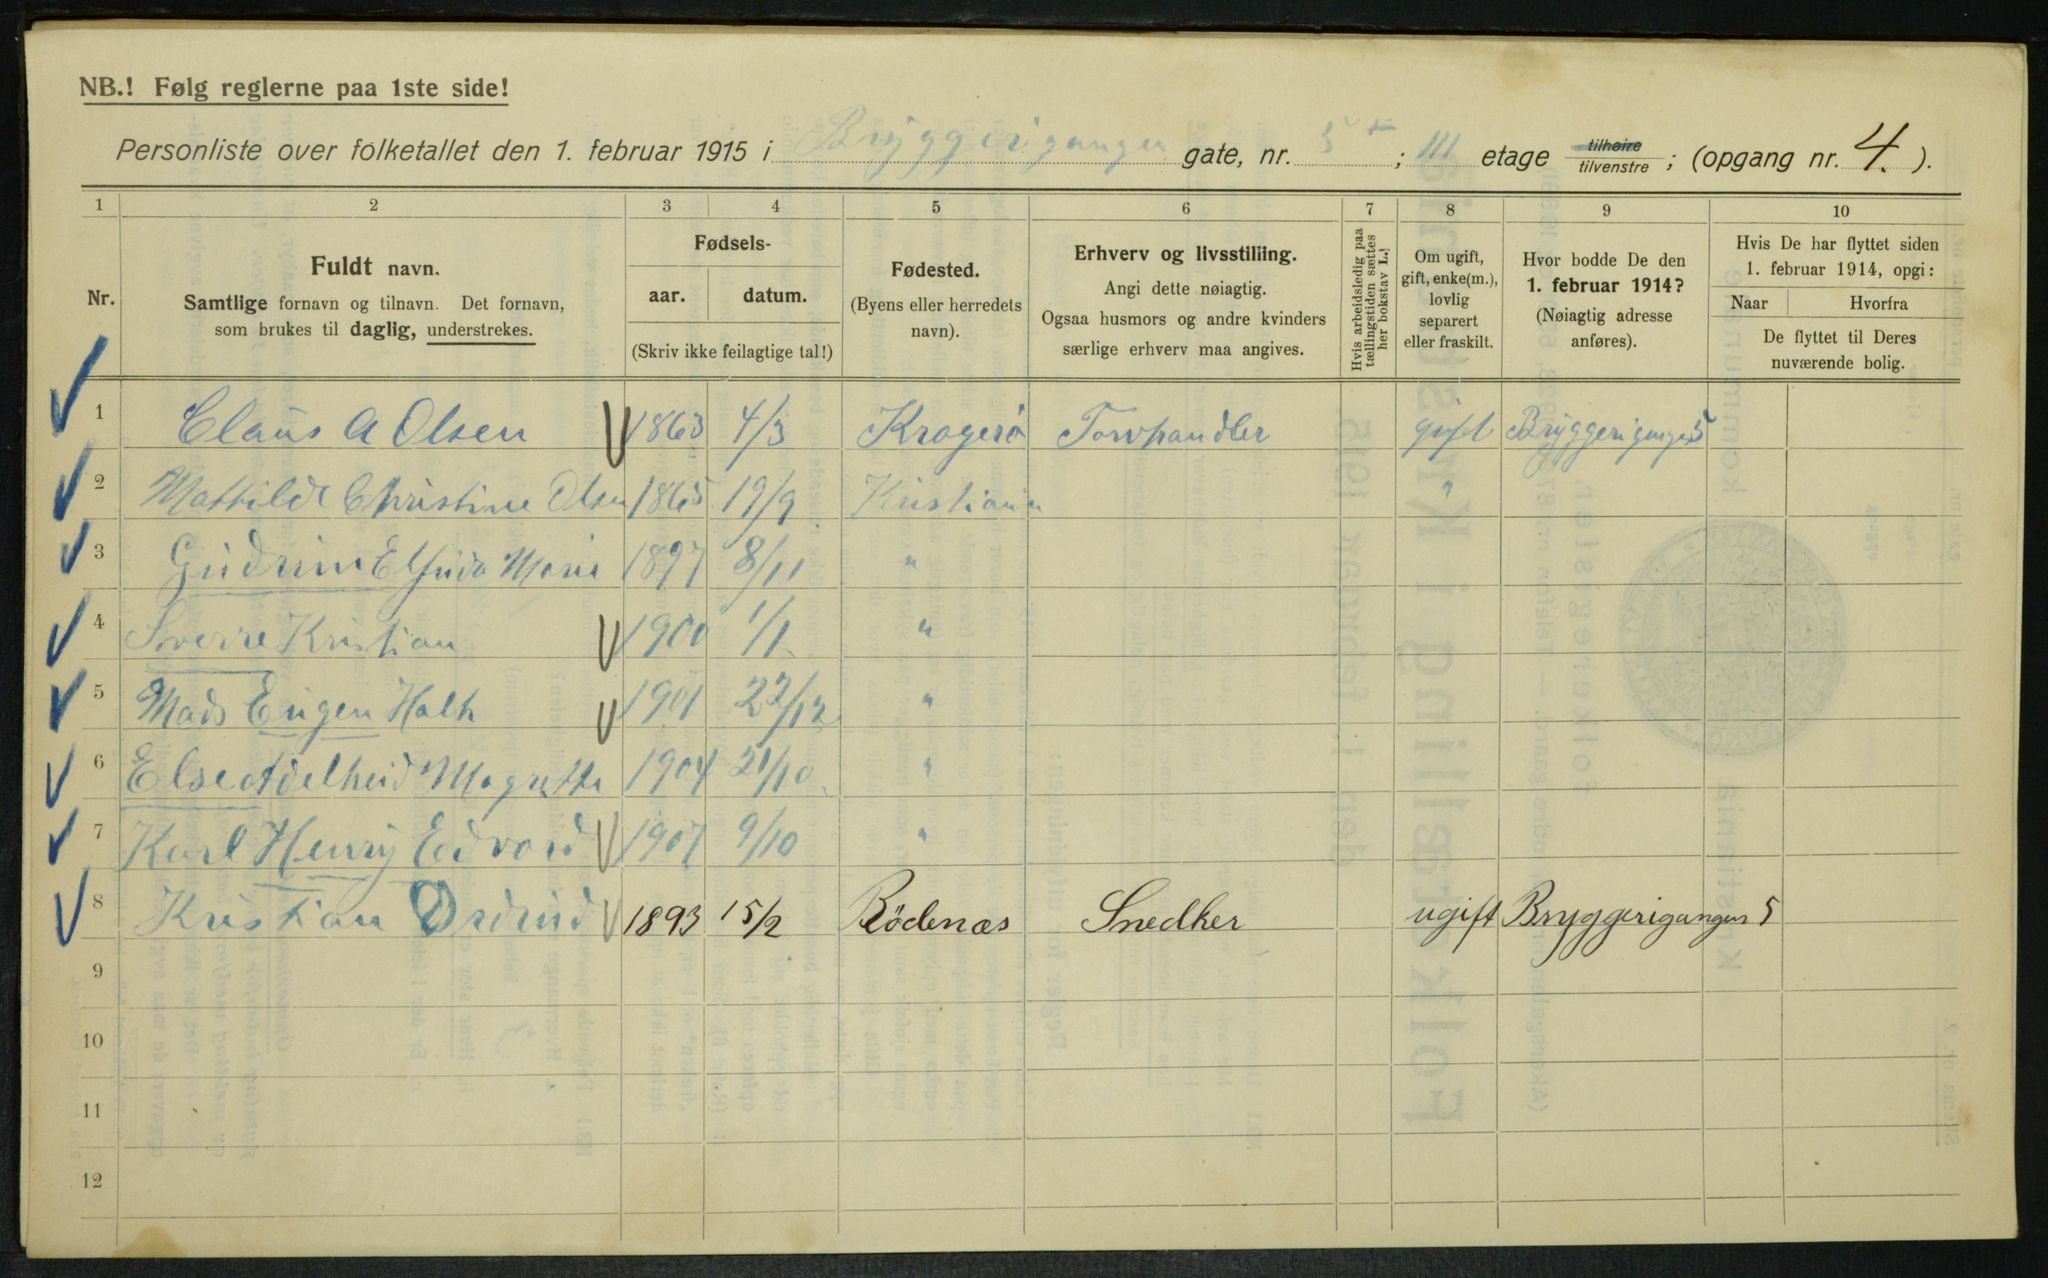 NB.! Følg reglerne paa 1ste side!
Personliste over folketallet den 1. februar 1915 i Bryggerigangen gate, nr. 5 ; III etage tilhøire tilvenstre ; (opgang nr. 4. ).
1 2 3 4 5 6 7 8 9 10
Nr.
Fuldt navn.
Samtlige fornavn og tilnavn. Det fornavn,
som brukes til daglig, understrekes.
Fødsels-
aar. datum.
(Skriv ikke feilagtige tal!)
Fødested.
(Byens eller herredets
navn).
Erhverv og livsstilling.
Angi dette nøiagtig.
Ogsaa husmors og andre kvinders
særlige erhverv maa angives.
Hvis arbeidsledig paa
tællingstiden sættes
her bokstav L.!
Om ugift,
gift, enke(m.),
lovlig
separert
eller fraskilt.
Hvor bodde De den
1. februar 1914?
(Nøiagtig adresse
anføres).
Hvis De har flyttet siden
1. februar 1914, opgi:
Naar Hvorfra
De flyttet til Deres
nuværende bolig.
1 Claus A Olsen 1863 4/3 Kragerö Torvhandler gift Bryggerigangen 5
2 Mathilde Christine Olsen 1865 19/9 Kristiania "
3 Gudrun Elfrida Maria 1897 8/11 "
4 Sverre Kristian 1900 1/1 "
5 Mads Eugen Halk 1901 22/12 "
6 Else Adelheid Magretha 1904 21/10 "
7 Karl Henry Edvard 1907 9/10 "
8 Kristian 1893 15/2 Rödenæs Snedker ugift Bryggerigangen 5
9
10
11
12